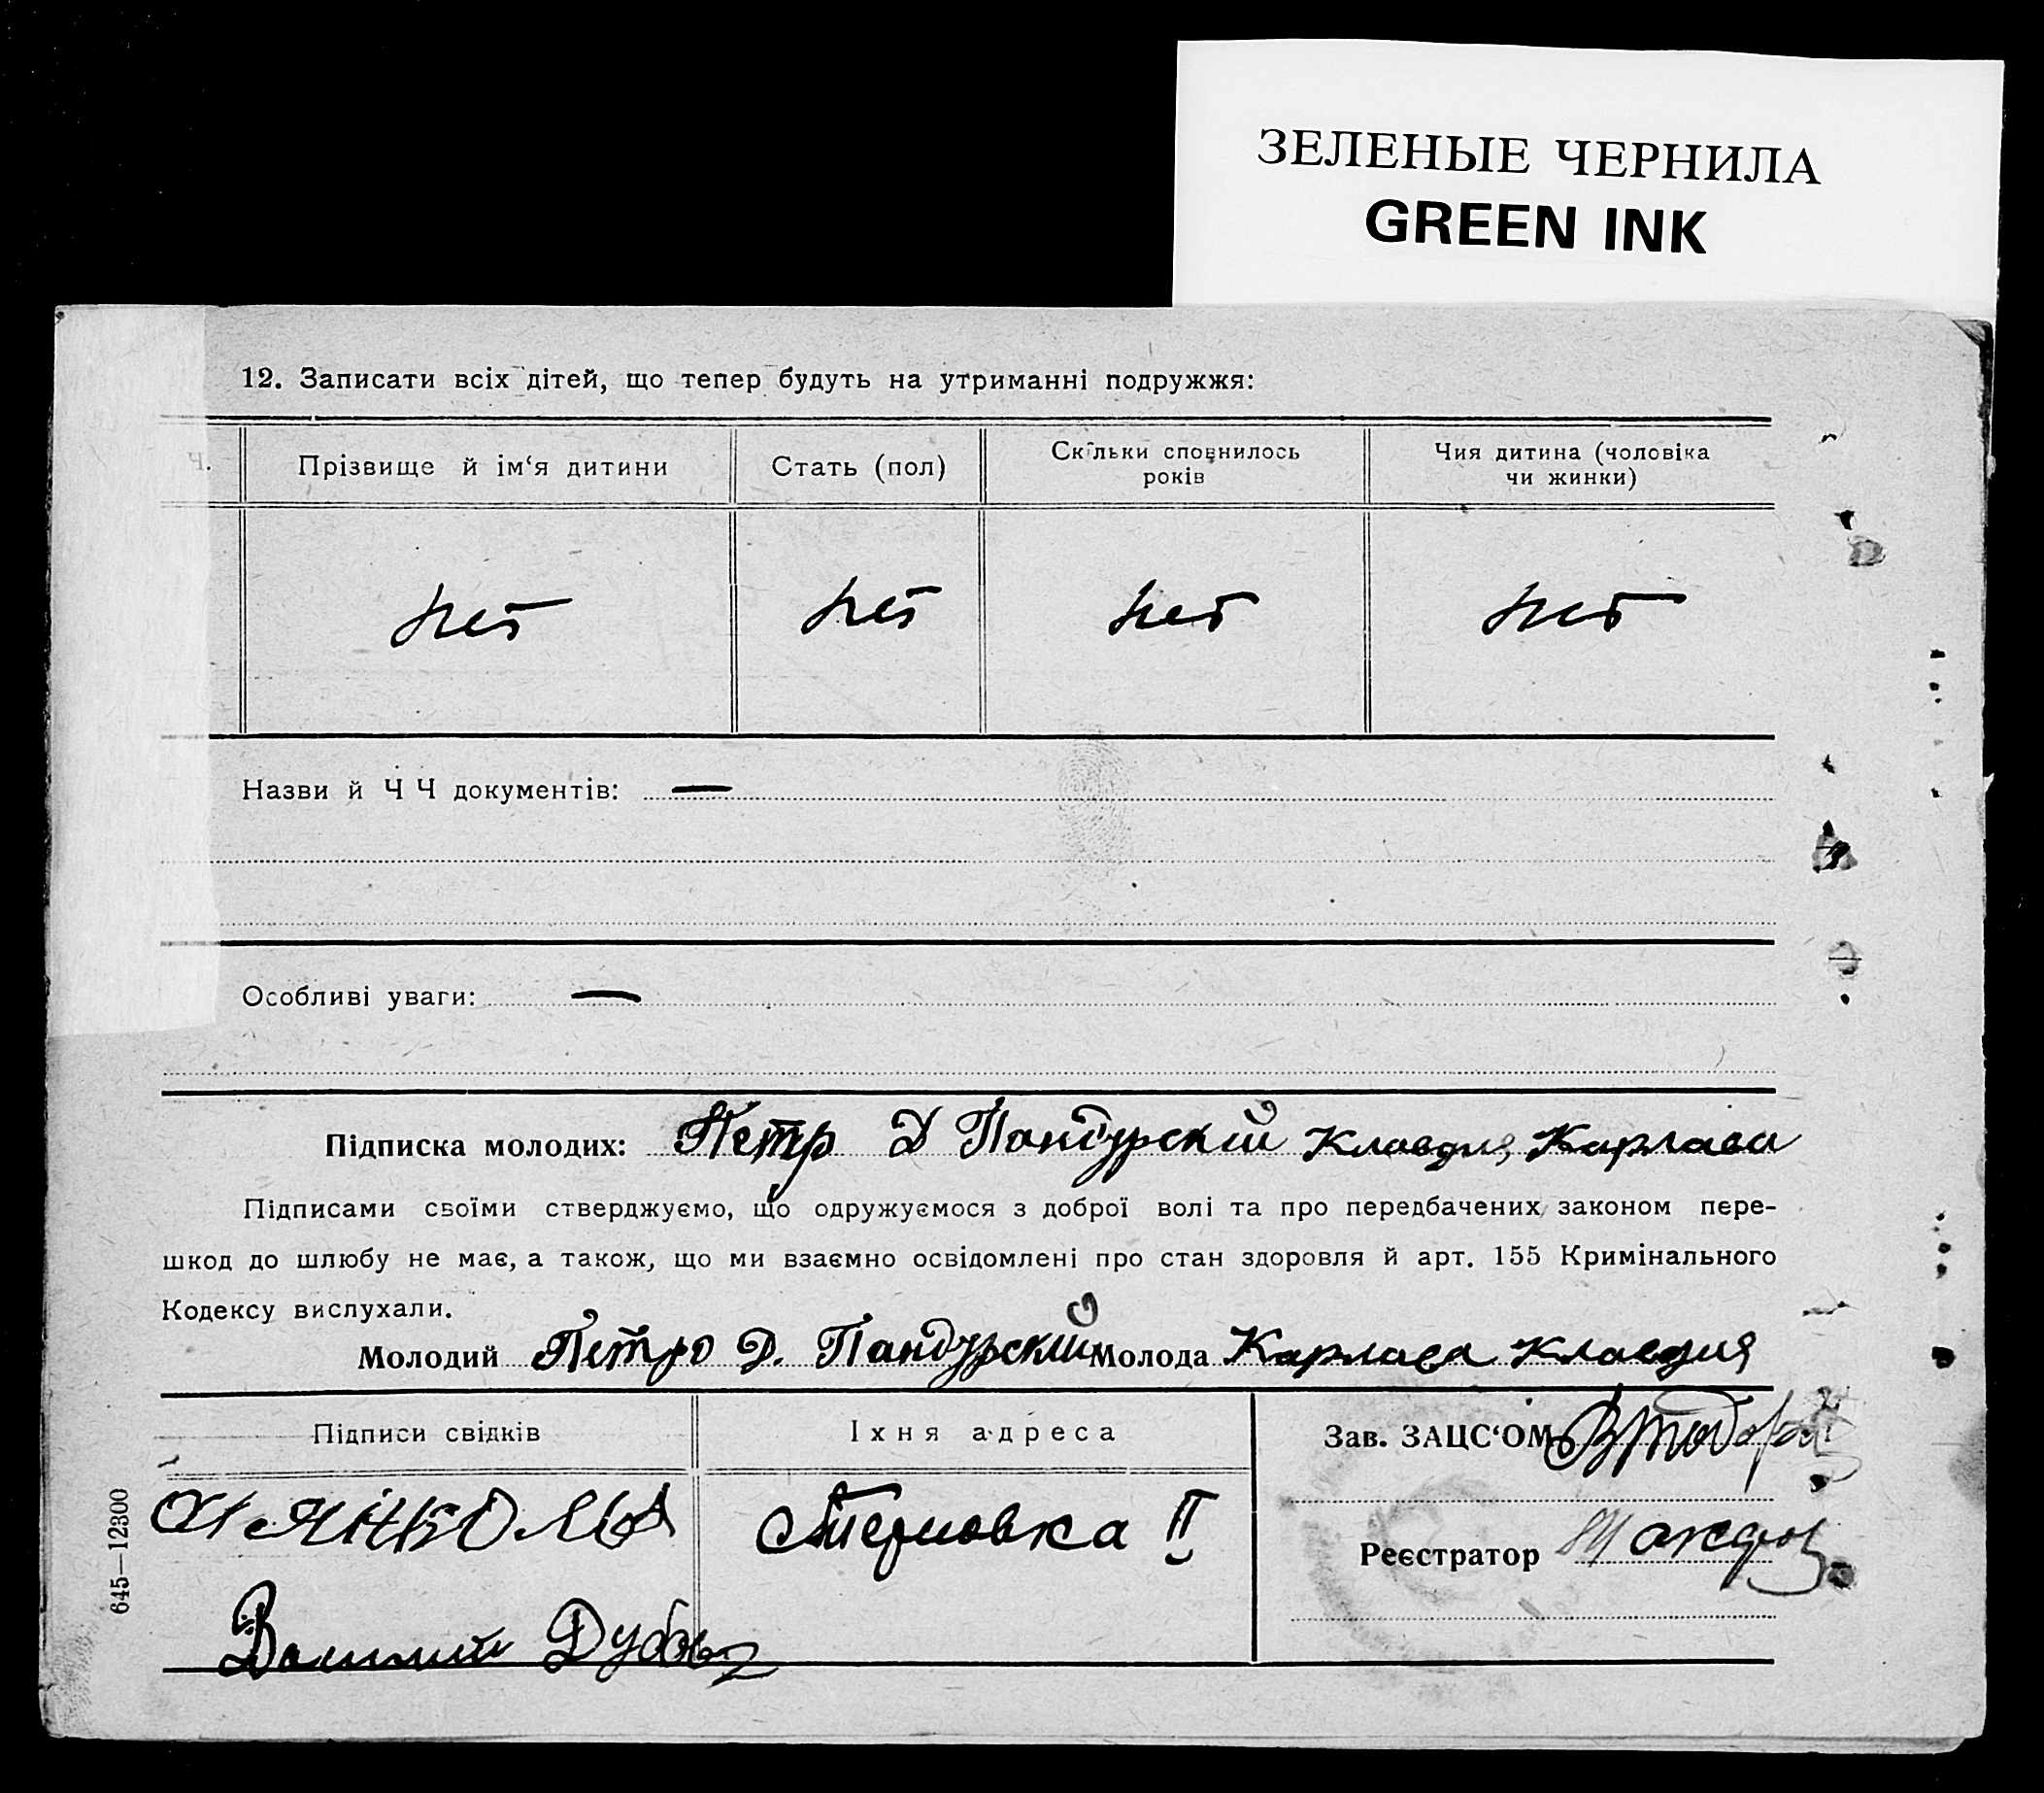 ЗЕЛЕНЫЕ ЧЕРНИЛА
GREEN INK
12. Записати всіх дітей, що тепер будуть на утриманні подружжя:
Ч. Прізвище й ім‘я дитини Стать (пол) Скільки сповнилось років Чия дитина (чоловіка чи жинки)
нет нет нет нет
Назви й Ч Ч документів: —
Особливі уваги: —
Підписка молодих: Петр Д Пандурскій Клавдия Карлава
Підписами своїми стверджуємо, що одружуємося з доброї волі та про передбачених законом пере-
шкод до шлюбу не має, а також, що ми взаємно освідомлені про стан здоровля й арт. 155 Кримінального
Кодексу вислухали.
Молодий Петро Д. Пандурский Молода Карлава Клавдия
Підписи свідків Їхня адреса Зав. ЗАЦС‘ОМ
Терновка II
Реєстратор
Василий
645—12300